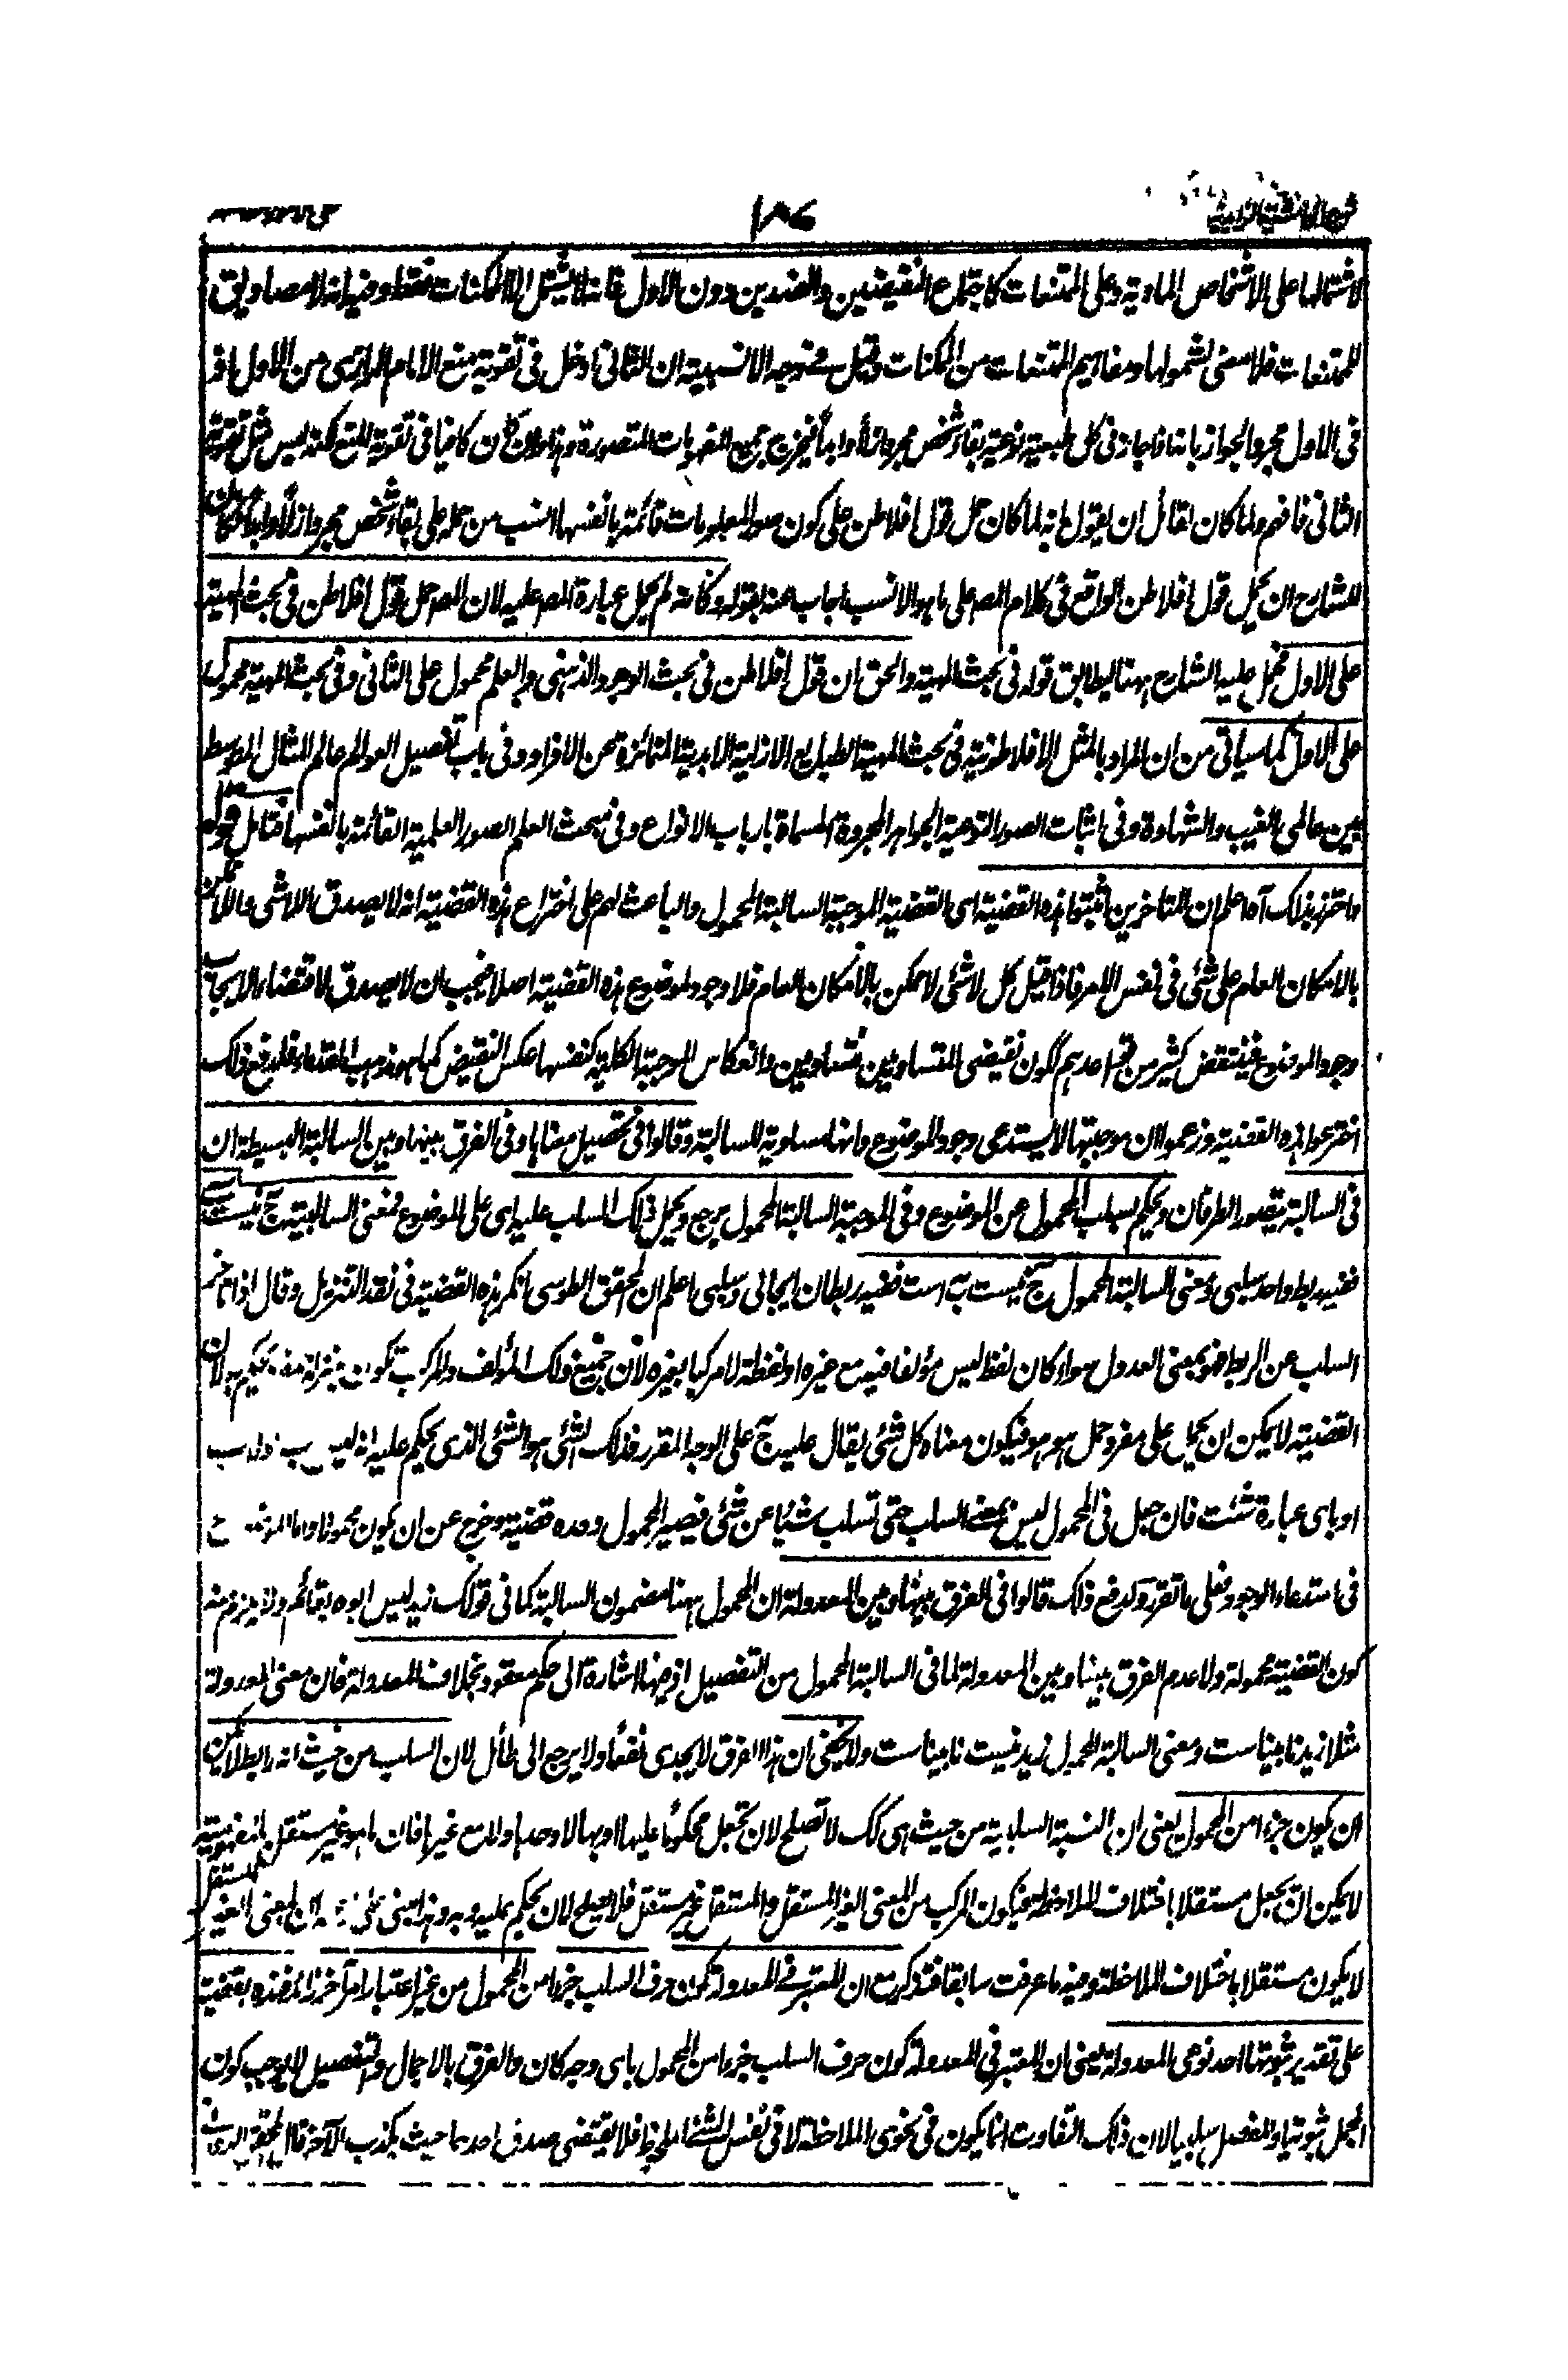 ١٨٤
لاشتمالها على الأشخاص المادية وعلى الممتنعات كاجتماع النقيضين والضدين دون الاول فانه لا يشتمل الا الممكنات فقط وفيه انه لا مصاديق
للممتنعات فلا معنى لشمولها ومفاهيم الممتنعات من الممكنات وقيل في توجيه الانسبية ان الثاني ادخل في تقوية منع الامام الرازي من الاول اذ
في الاول مجرد الجواز بانه اذا جاز في كل طبيعة نوعية بقاء شخص مجرد ازلا وابدا فيخرج جميع المفهومات المتصورة وهذا وان كان كافيا في تقوية المنع لكنه ليس مثل تقوية
الثاني فافهم ولما كان لقائل ان يقول انه لما كان حمل قول افلاطن على كون صور المعلومات قائمة بانفسها انسب من حمله على بقاء شخص مجرد ازلا وابدا فكان
للشارح ان يحمل قول افلاطن الواقع في كلام المصـ على ما هو الانسب اجاب عنه بقوله وكانه لم يحمل عبارة المصـ عليه لان المصـ حمل قول افلاطن في بحث المهية
على الاول فحمل عليه الشارح ههنا ليطابق قوله في بحث المهية والحق ان قول افلاطن في بحث الوجود الذهني والعلم محمول على الثاني وفي بحث المهية محمول
على الاول كما سيأتي من ان المراد بالمثل الافلاطونية في بحث المهية الطبايع الازلية الابدية المتمائزة عن الافراد وفي باب تفصيل العوالم عالم المثال المتوسط
بين عالمي الغيب والشهادة وفي اثبات الصور النوعية الجواهر المجردة المسماة بارباب الانواع وفي مبحث العلم الصور العلمية القائمة بانفسها فتامل قوله
واحترز بذلك آه اعلم ان المتاخرين اثبتوا هذه القضية اى القضية الموجبة السالبة المحمول والباعث لهم على اختراع هذه القضية انه لا يصدق اللاشي واللاممكن
بالامكان العام على شئ في نفس الامر فاذا قيل كل لاشئ لاممكن بالامكان العام فلا وجود لموضوع هذه القضية اصلا فيجب ان لا يصدق لاقتضاء الايجاب
وجود الموضوع فينتقض كثير من قواعدهم ككون نقيضي المتساويين متساويين وانعكاس الموجبة الكلية كنفسها عكس النقيض كما هو مذهب القدماء فلدفع ذلك
اخترعوا هذه القضية وزعموا ان موجبتها لا يستدعي وجود الموضوع وانها مساوية للسالبة وقالوا في تحصيل معناها وفي الفرق بينها وبين السالبة البسيطة ان
في السالبة يتصور الطرفان ويحكم بسلب المحمول عن الموضوع وفي الموجبة السالبة المحمول يرجع ويحمل ذلك السلب عليه اى على الموضوع فمعنى السالبة ج نيست ب
ففيه ربط واحد سلبي ومعنى السالبة المحمول ج نيست ب است ففيه ربطان ايجابي وسلبي اعلم ان المحقق الطوسي انكر هذه القضية في نقد التنزيل وقال اذا تاخر
السلب عن الربط فهو بمعنى العدول سواء كان لفظ ليس مؤلفا فيه مع خبره او لفظة لا مركبا بغيره لان جميع ذلك المؤلف والمركب تكون بمنزلة مفرد يحكم به لان
القضية لا يمكن ان يحمل على مفرد حمل هو هو فيكون معناه كل شئ يقال عليه ج على الوجه المقرر فذلك الشئ هو الشئ الذى يحكم عليه انه ليس ب
او باى عبارة شئت فان جعل في المحمول ليس بمعنى السلب حتى تسلب شيئا عن شئ فيصير المحمول وحده قضية وخرج عن ان يكون محمولا
في استدعاء الوجود فعلى ما تقرر ولدفع ذلك قالوا في الفرق بينها وبين المعدولة ان المحمول ههنا مضمون السالبة كما في قولك زيد ليس ابوه بقائم ولا يلزم منه
كون القضية محمولة ولا عدم الفرق بينها وبين المعدولة لما في السالبة المحمول من التفصيل اذ فيها اشارة الى حكم معقود بخلاف المعدولة فان معنى المعدولة
مثلا زيد نابيناست ومعنى السالبة المحمول زيد نيست نابيناست ولا يخفى ان هذا الفرق لا يجدي نفعا ولا يرجع الى طائل لان السلب من حيث انه رابط لا يمكن
ان يكون جزءا من المحمول يعني ان النسبة السلبية من حيث هي كك لا تصلح لان تجعل محكوما عليها او بها لا وحدها ولا مع غيرها فان ما هو غير مستقل بالمفهومية
لا يمكن ان يجعل مستقلا باختلاف الملاحظة فيكون المركب من المعنى الغير المستقل والمستقل غير مستقل فلا يصلح لان يحكم عليه وبه وهذا مبني على ان المعنى الغير المستقل
لا يكون مستقلا باختلاف الملاحظة وفيه ما عرفت سابقا فتذكر مع ان المعتبر في المعدولة كون حرف السلب جزءا من المحمول من غير اعتبار امر آخر زائد فهذه القضية
على تقدير ثبوتها احد نوعى المعدولة يعني ان المعتبر في المعدولة كون حرف السلب جزءا من المحمول باى وجه كان والفرق بالاجمال والتفصيل لا يوجب كون
المجمل ثبوتيا والمفصل سلبيا لان ذلك التفاوت انما يكون في نحوى الملاحظة لا في نفس الشئ الملحوظ فلا يقتضي صدق احدهما حيث يكذب الآخر قال المحقق الدواني